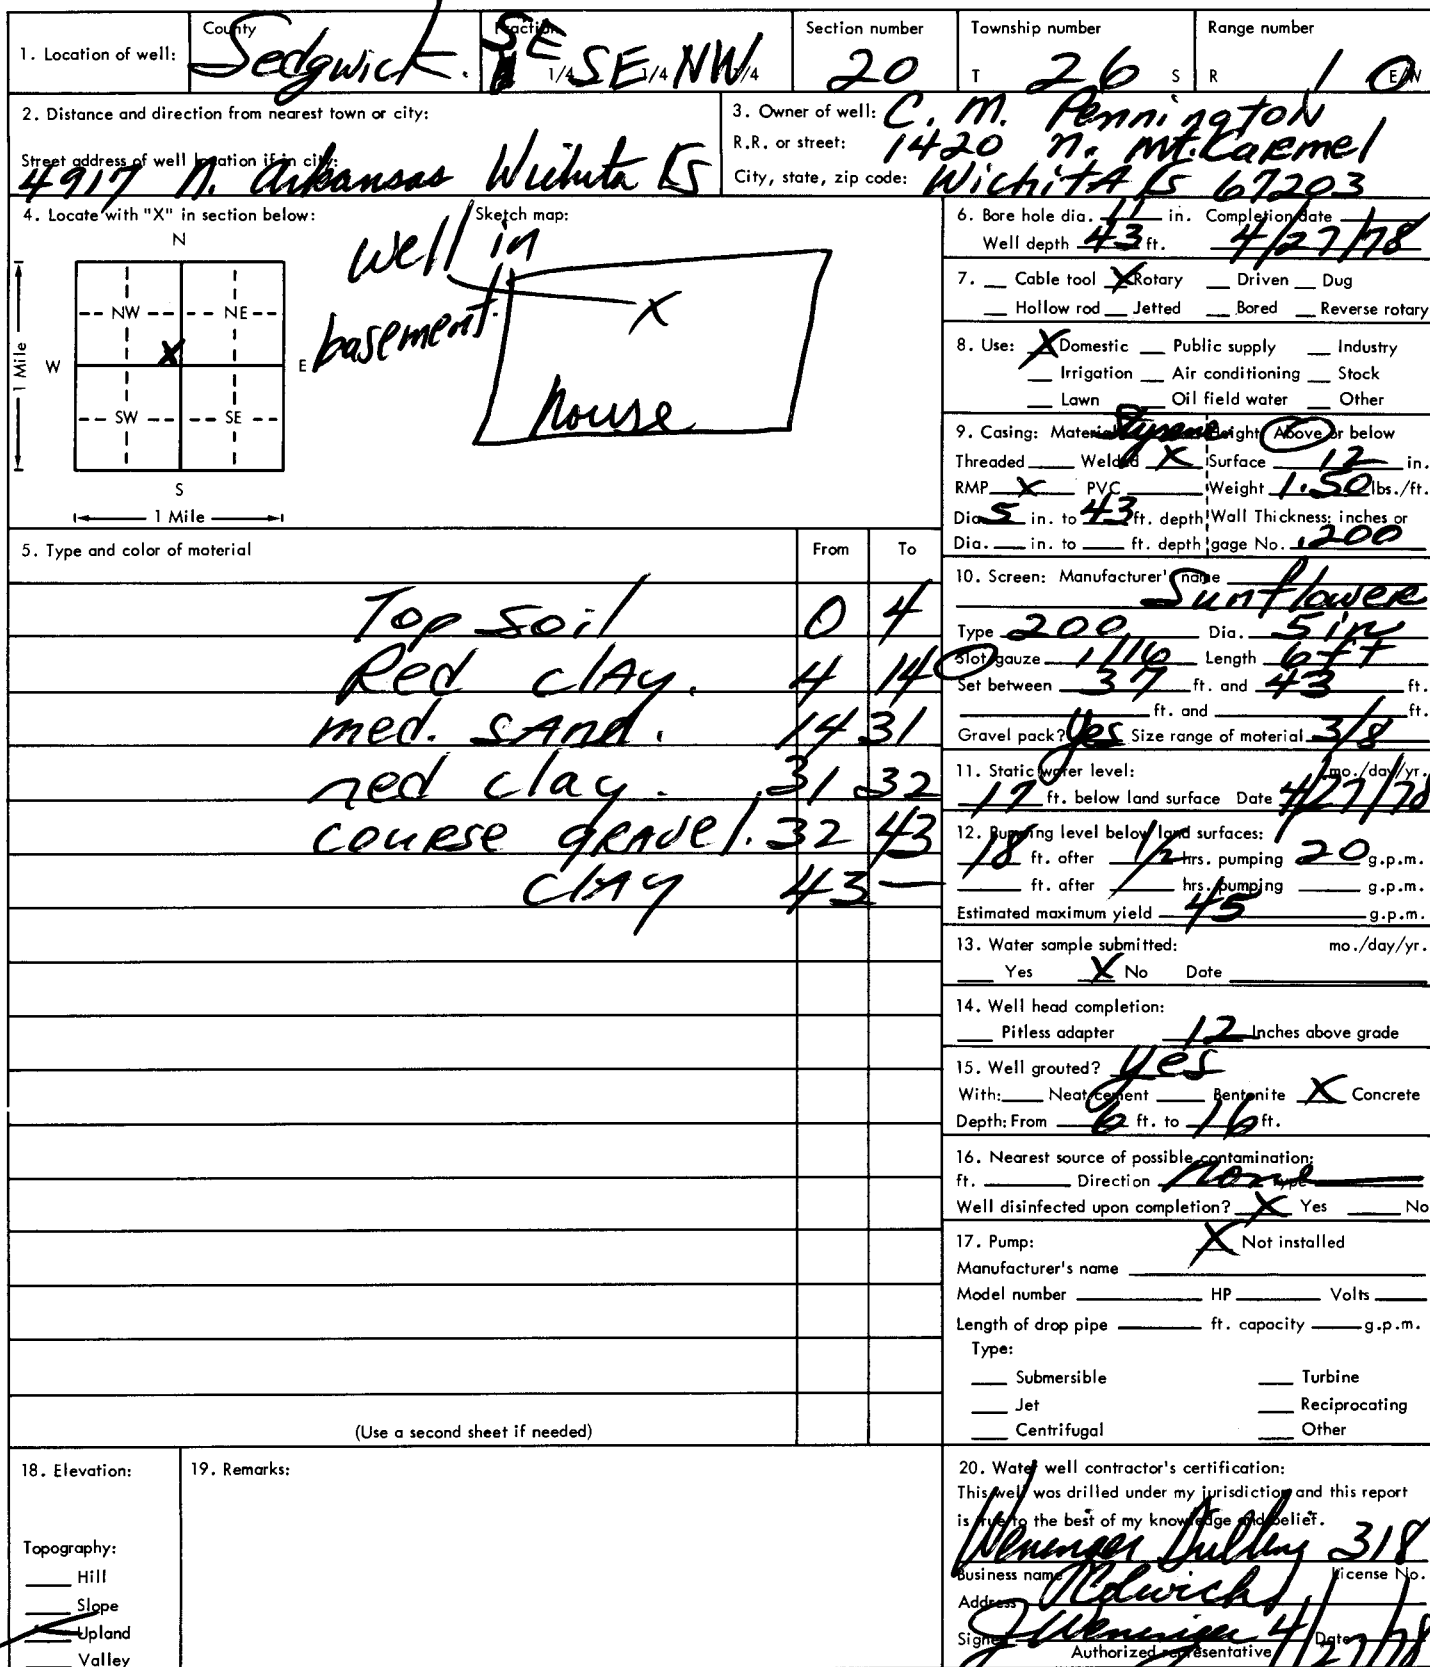 1. Location of well: County Sedgwick. Fraction SE 1/4 SE 1/4 NW 1/4 Section number 20 Township number T 26 S Range number R 1 E/W
2. Distance and direction from nearest town or city:
Street address of well location if in city:
4917 N. Arkansas Wichita Ks
3. Owner of well: C. M. Pennington
R.R. or street: 1420 N. Mt. Carmel
City, state, zip code: Wichita Ks 67203
4. Locate with "X" in section below:
N
NW NE
X
W E
SW SE
S
1 Mile
1 Mile
Sketch map:
well in
basement.
X
house
5. Type and color of material From To
Top soil 0 4
Red clay. 4 14
med. sand. 14 31
red clay. 31 32
course gravel. 32 43
clay 43 —
(Use a second sheet if needed)
6. Bore hole dia. 11 in. Completion date
Well depth 43 ft. 4/27/78
7. Cable tool X Rotary Driven Dug
Hollow rod Jetted Bored Reverse rotary
8. Use: X Domestic Public supply Industry
Irrigation Air conditioning Stock
Lawn Oil field water Other
9. Casing: Material Styrene Height: Above or below
Threaded Welded X Surface 12 in.
RMP X PVC Weight 1.50 lbs./ft.
Dia. 5 in. to 43 ft. depth Wall Thickness: inches or
Dia. in. to ft. depth gage No. .200
10. Screen: Manufacturer's name
Sunflower
Type 200 Dia. 5 in
Slot/gauze 1/16 Length 6 ft
Set between 37 ft. and 43 ft.
ft. and ft.
Gravel pack? Yes Size range of material 3/8
11. Static water level: mo./day/yr.
17 ft. below land surface Date 4/27/78
12. Pumping level below land surfaces:
18 ft. after 1/2 hrs. pumping 20 g.p.m.
ft. after hrs. pumping g.p.m.
Estimated maximum yield 45 g.p.m.
13. Water sample submitted: mo./day/yr.
Yes X No Date
14. Well head completion:
Pitless adapter 12 Inches above grade
15. Well grouted? yes
With: Neat cement Bentonite X Concrete
Depth: From 6 ft. to 16 ft.
16. Nearest source of possible contamination:
ft. Direction none Type
Well disinfected upon completion? X Yes No
17. Pump: X Not installed
Manufacturer's name
Model number HP Volts
Length of drop pipe ft. capacity g.p.m.
Type:
Submersible Turbine
Jet Reciprocating
Centrifugal Other
18. Elevation:
Topography:
Hill
Slope
Upland
Valley
19. Remarks:
20. Water well contractor's certification:
This well was drilled under my jurisdiction and this report
is true to the best of my knowledge and belief.
Weninger Drilling 318
Business name License No.
Address Colwich
Signed J Weninger Date 4/27/78
Authorized representative